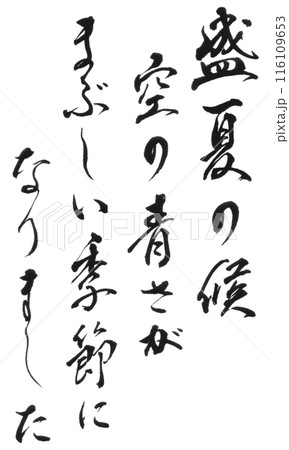 盛夏の候
空の青さが
まぶしい季節に
なりました
pixta.jp - 116109653